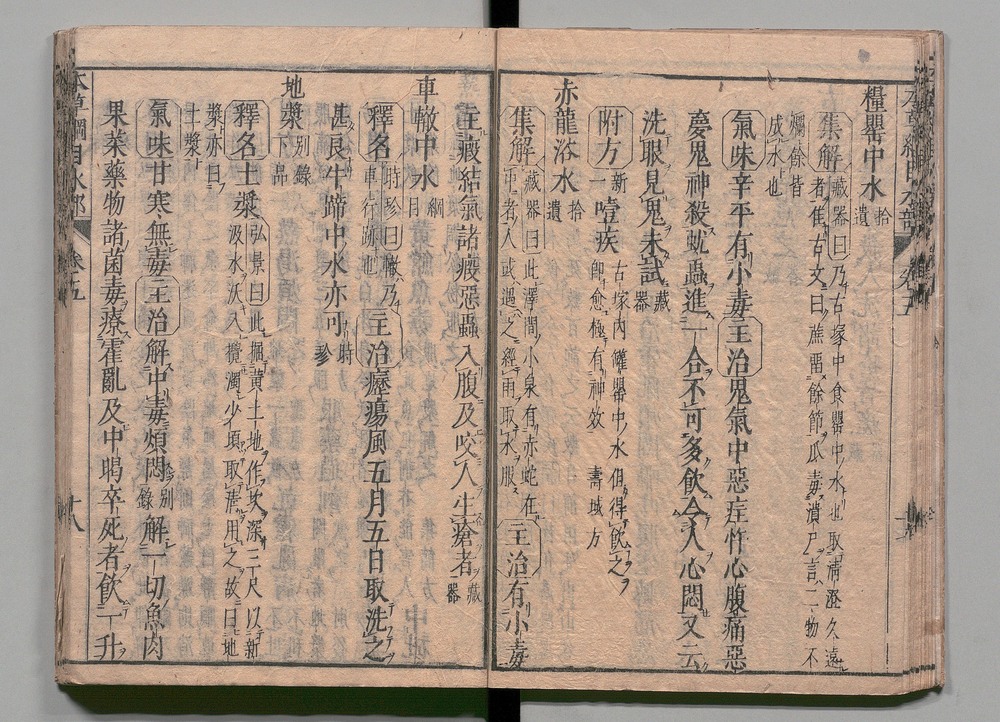 糧罌中水拾遺
集解藏器曰乃古塚中食罌中水也取清澄久遠
者隹古文曰蔗畱餘節瓜毒潰尸言二物不
爛餘皆
成水也
氣味辛平有小毒主治鬼氣中惡疰忤心腹痛惡
夢鬼神殺蚘蟲進一合不可多飲令人心悶又云
洗眼見鬼未試藏器
附方新一噎疾古冢內罐罌中水但得飲之
即愈極有神效壽域方
赤龍浴水拾遺
集解藏器曰此澤間小泉有赤蛇在
中者人或遇之經雨取水服
主治有小毒
主瘕結氣諸瘕惡蟲入腹及咬人生瘡者藏器
車轍中水綱目
釋名時珍曰轍乃
車行跡也
主治癧瘍風五月五日取洗之
甚良牛蹄中水亦可時珍
地漿別錄下品
釋名土漿弘景曰此掘黃土地作坎深三尺以新
汲水沃入攪濁少頃取清用之故曰地
漿亦曰
土漿
氣味甘寒無毒主治解中毒煩悶別錄解一切魚肉
果菜藥物諸菌毒療霍亂及中暍卒死者飲一升
本草綱目水部
卷五
十八